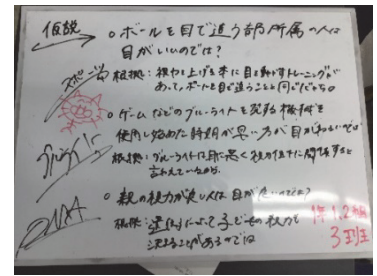 仮説
○ボールを目で追う部所属の人は
目がいいのでは?
スポーツ
根拠:視力を上げる本に目を動かすトレーニングが
あって、ボールを目で追うことと同じだから。
○ゲームなどのブルーライトを発する機械を
使用し始めた時期が早い方が目がわるいのでは
根拠:ブルーライトは目に悪く視力低下に関係すると
言われているから。
○親の視力が良い人は目が良いのでは?
DNA
根拠:遺伝によって子どもの視力も
決まることがあるのでは
1年1,2組
3班